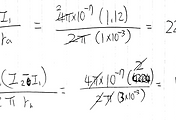 I₁ / r_a = ²4π×10⁻⁷ (1,12) / 2π (1×10⁻³) = 22
(I₂ I₁) / 2π r_b = 4π×10⁻⁷ ( ) / 2π (3×10⁻³) =